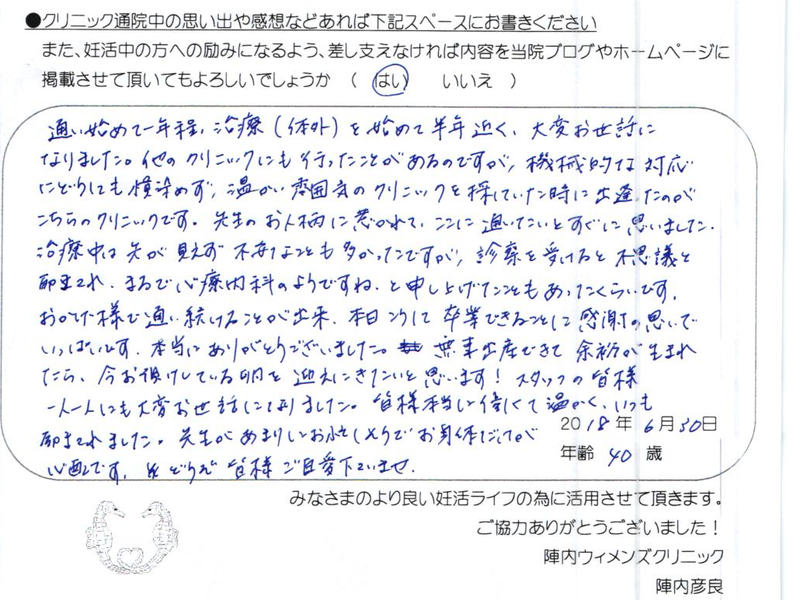 ●クリニック通院中の思い出や感想などあれば下記スペースにお書きください
また、妊活中の方への励みになるよう、差し支えなければ内容を当院ブログやホームページに
掲載させて頂いてもよろしいでしょうか （ はい いいえ ）
通い始めて一年程、治療（体外）を始めて半年近く、大変お世話に
なりました。他のクリニックにも行ったことがあるのですが、機械的な対応
にどうにも馴染めず、温かい雰囲気のクリニックを探していた時に出逢ったのが
こちらのクリニックです。先生のお人柄に惹かれて、ここに通いたいとすぐに思いました。
治療中は先が見えず不安なことも多かったですが、診察を受けると不思議と
励まされ、まるで心療内科のようですね、と申し上げたこともあったくらいです。
おかげ様で通い続けることが出来、本日こうして卒業できることに感謝の思いで
いっぱいです。本当にありがとうございました。無事出産できて余裕が生まれ
たら、今お預けしている卵を迎えにきたいと思います！スタッフの皆様
一人一人にも大変お世話になりました。皆様本当に優しくて温かく、いつも
励まされました。先生があまりにお忙しそうでお身体だけが
心配です。どうぞ皆様ご自愛下さいませ。
2018年 6月30日
年齢 40 歳
みなさまのより良い妊活ライフの為に活用させて頂きます。
ご協力ありがとうございました！
陣内ウィメンズクリニック
陣内彦良